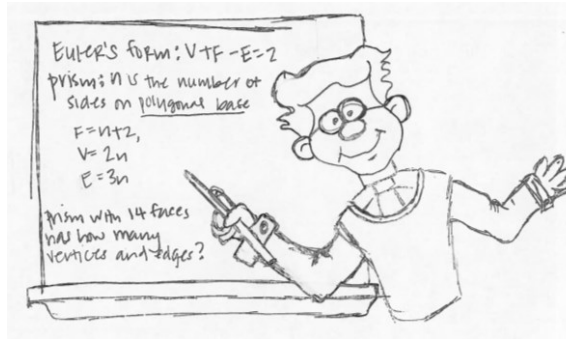 Euler's form: V+F-E=2
prism: n is the number of
sides on polygonal base
F=n+2,
V=2n
E=3n
prism with 14 faces
has how many
vertices and edges?